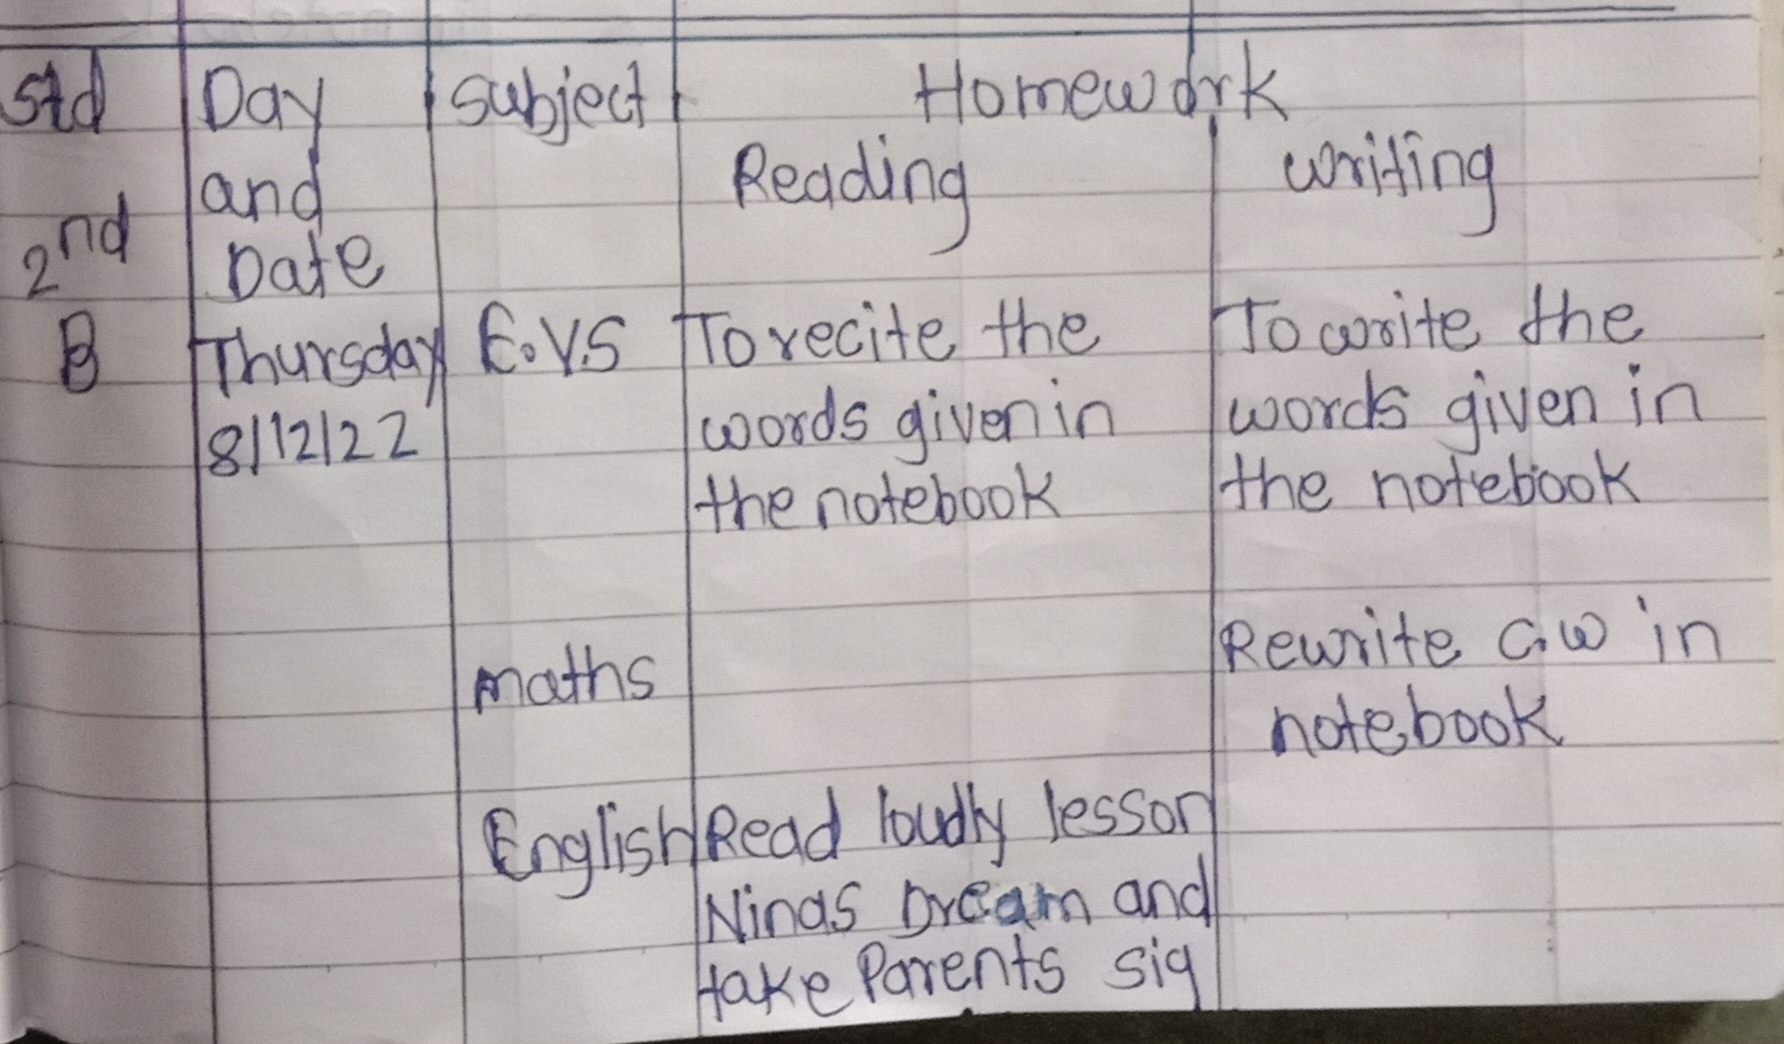 Std Day Subject Homework
and Reading writing
2nd Date
B Thursday E.V.S To recite the To write the
8/12/22 words given in words given in
the notebook the notebook
maths Rewrite C.W in
notebook
English Read loudly lesson
Ninas Dream and
take Parents sig